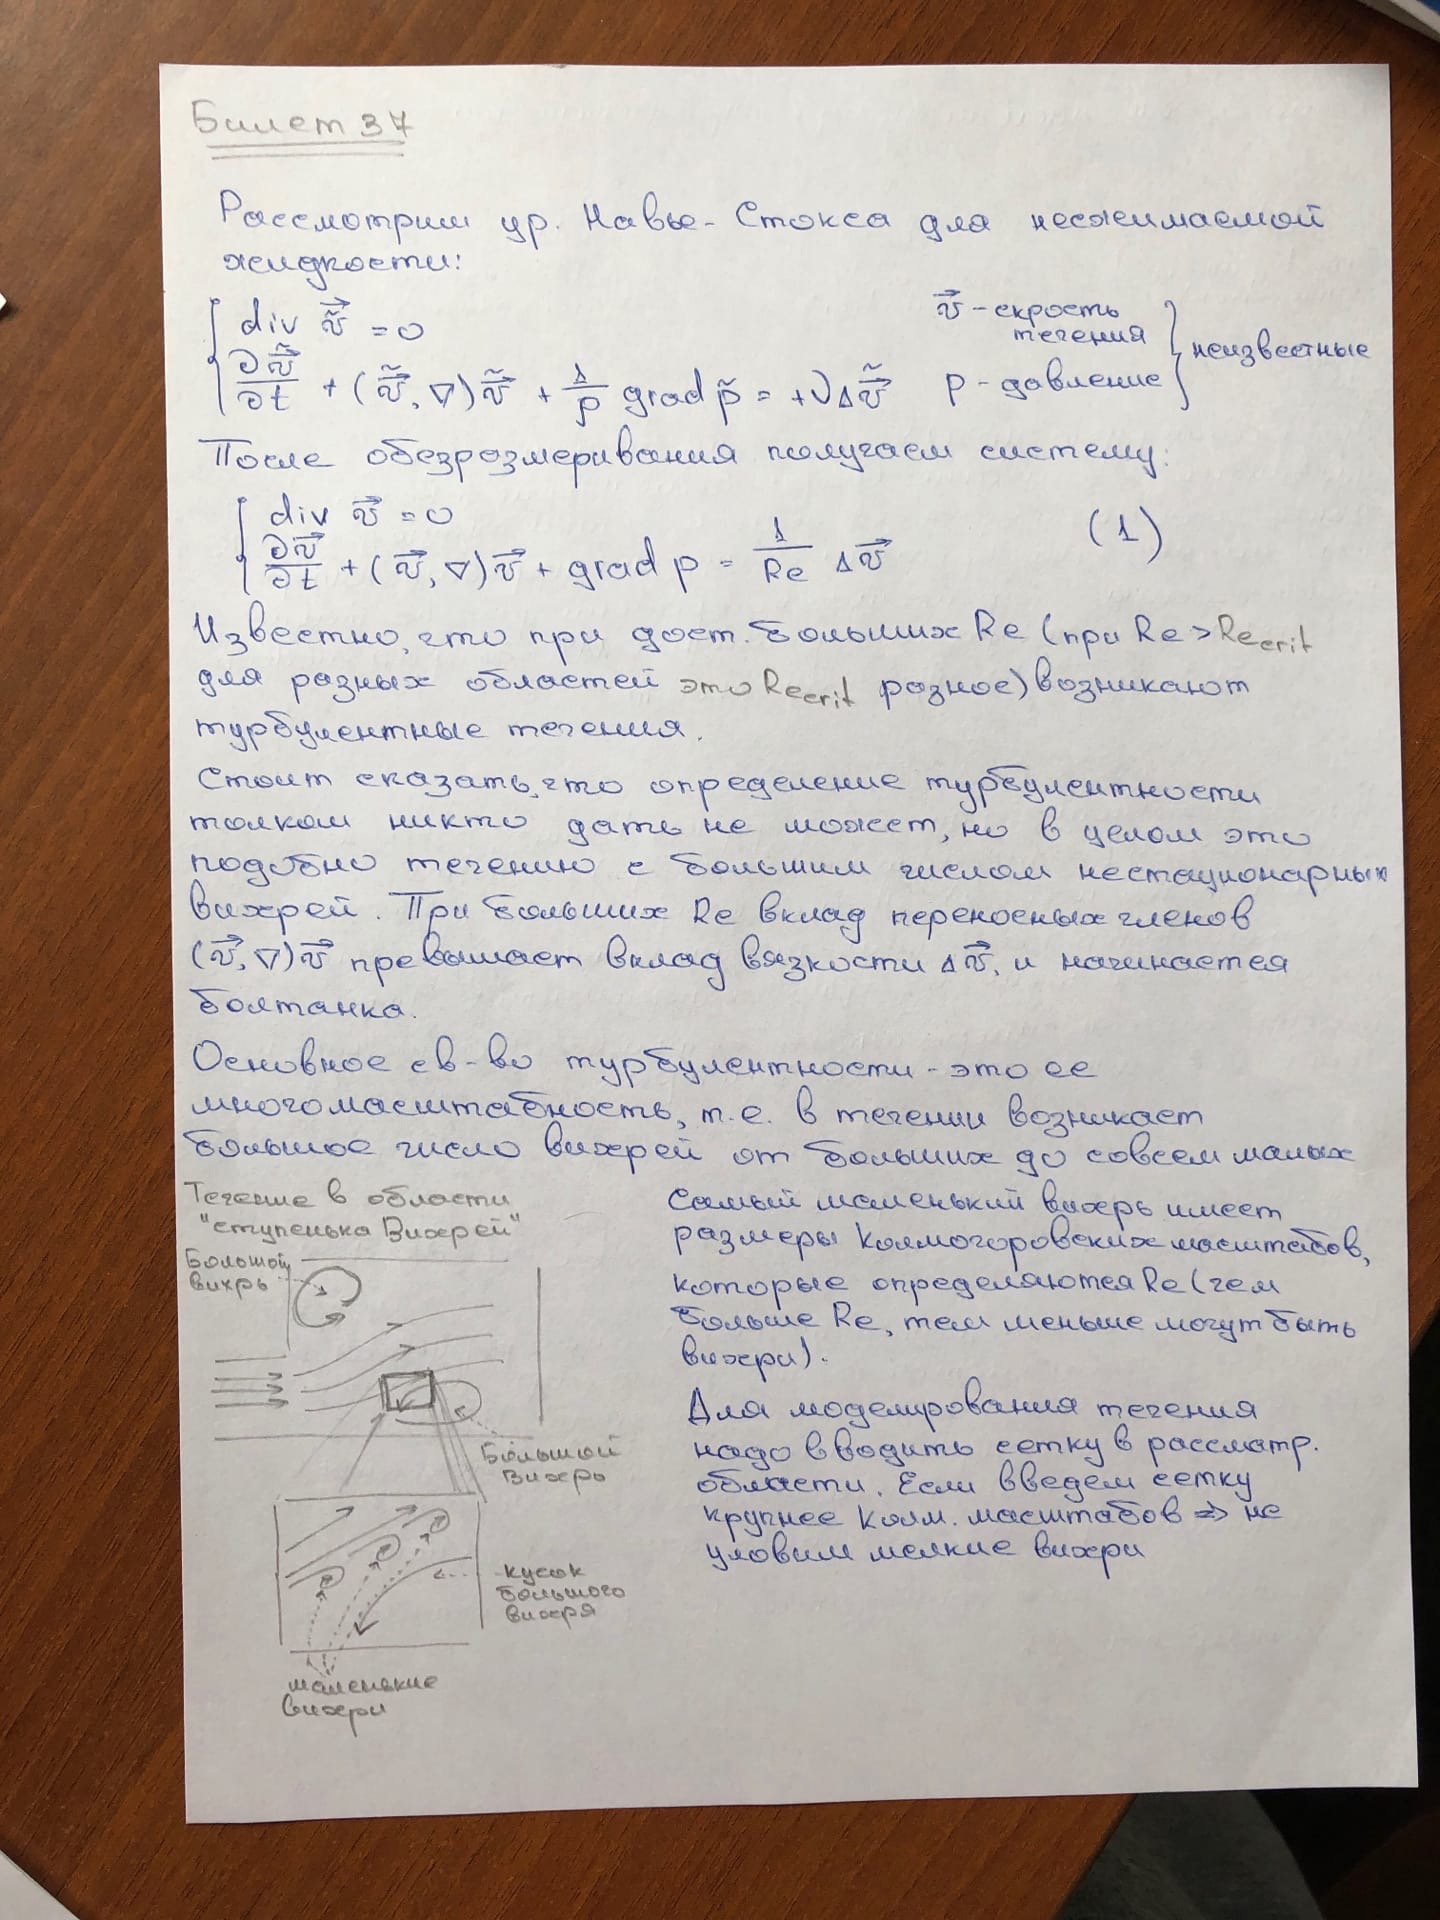 Билет 37
Рассмотрим ур. Навье-Стокса для несжимаемой
жидкости:
div ṽ⃗ = 0
∂ṽ⃗/∂t + (ṽ⃗, ∇)ṽ⃗ + 1/ρ grad p̃ = +ν∆ṽ⃗
v⃗ - скрость
течения
p - давление
неизвестные
После обезрозмеривания получаем систему:
div v⃗ = 0
∂v⃗/∂t + (v⃗, ∇)v⃗ + grad p = 1/Re ∆v⃗
(1)
Известно, что при дост. больших Re (при Re > Re_crit
для разных областей это Re_crit разное) возникают
турбулентные течения.
Стоит сказать, что определение турбулентности
толком никто дать не может, но в целом это
подобно течению с большим числом нестационарных
вихрей. При больших Re вклад переносных членов
(v⃗, ∇)v⃗ превышает вклад вязкости ∆v⃗, и начинается
болтанка.
Основное св-во турбулентности - это ее
многомасштабность, т.е. в течении возникает
большое число вихрей от больших до совсем малых
Течение в области
"ступенька Вихрей"
Большой
вихрь
Большой
Вихрь
кусок
большого
вихря
маленькие
вихри
Самый маленький вихрь имеет
размеры Колмогоровских масштабов,
которые определяются Re (чем
больше Re, тем меньше могут быть
вихри).
Для моделирования течения
надо вводить сетку в рассматр.
области. Если введем сетку
крупнее Колм. масштабов => не
уловим мелкие вихри